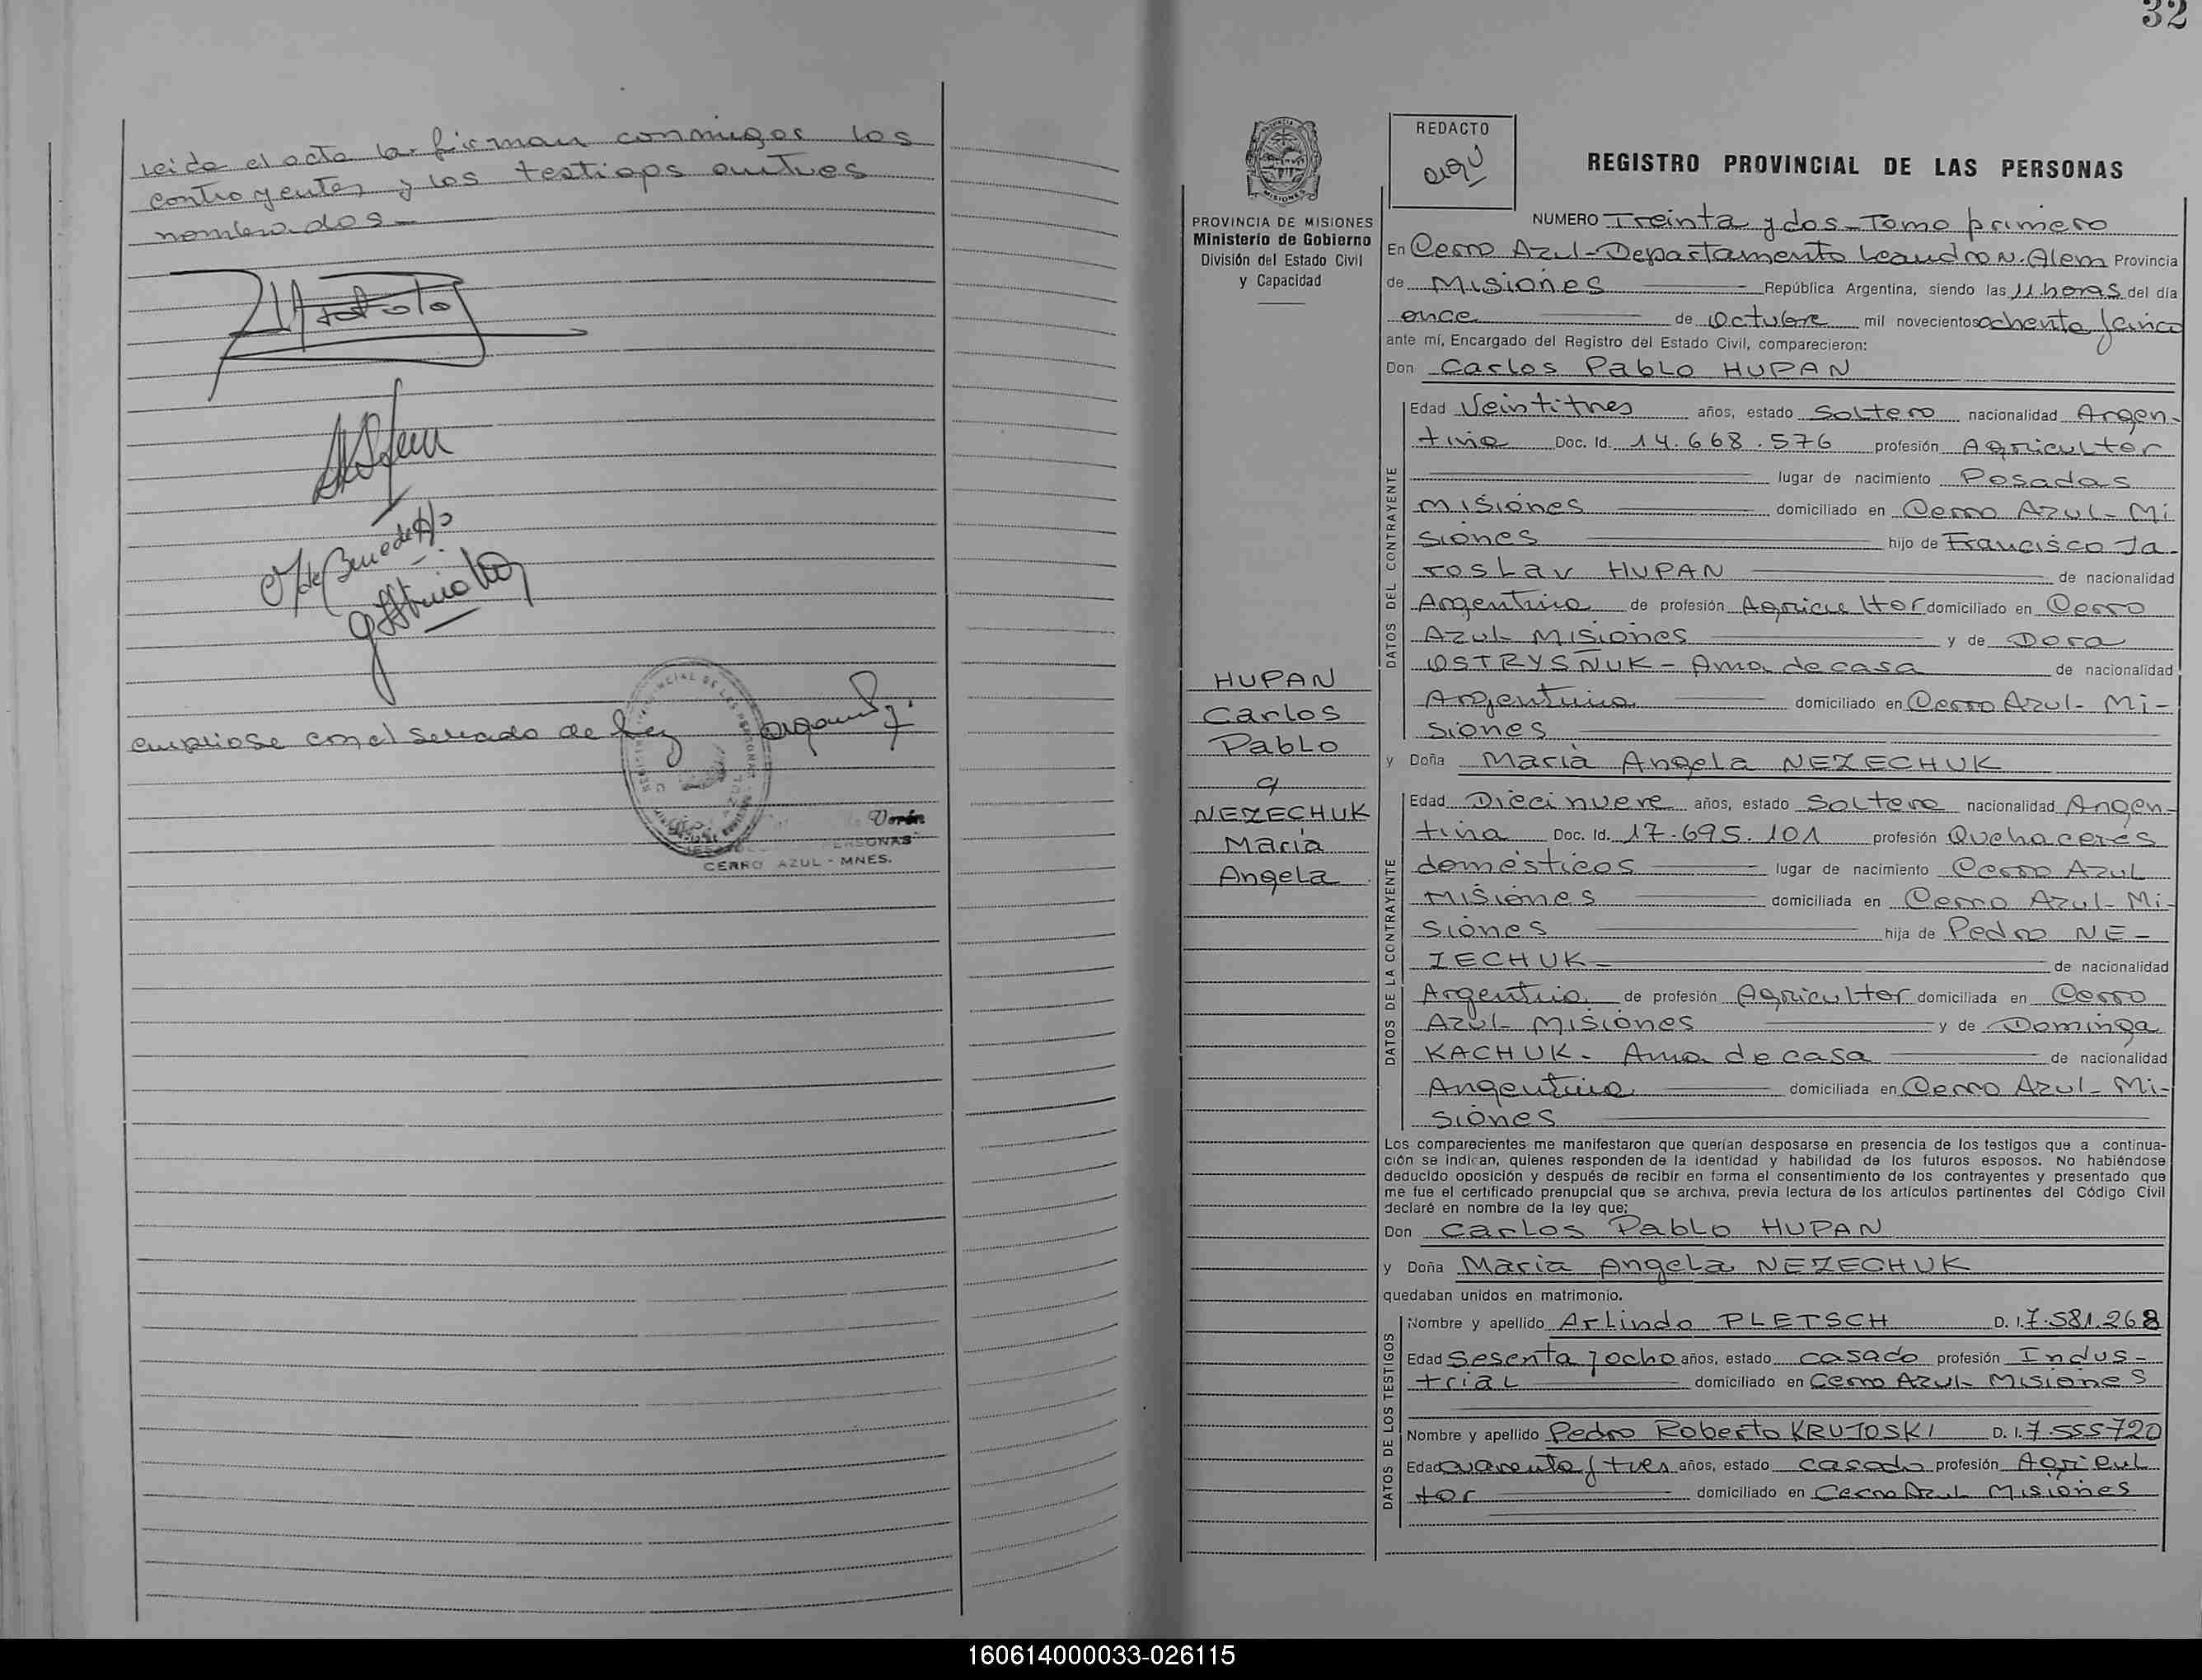 leida el acta la firman conmigos los
contrayentes y los testiops
nombrados-
cumpliose con el sellado de ley
CERRO AZUL - MNES.
32
PROVINCIA DE MISIONES
Ministerio de Gobierno
División del Estado Civil
y Capacidad
HUPAN
Carlos
Pablo
y
NEZECHUK
Maria
Angela
REDACTO
REGISTRO PROVINCIAL DE LAS PERSONAS
NUMERO Treinta y dos - Tomo primero
En Cerro Azul - Departamento Leandro N. Alem Provincia
de Misiones República Argentina, siendo las 11 horas del día
once de Octubre mil novecientos ochenta y cinco
ante mí, Encargado del Registro del Estado Civil, comparecieron:
Don Carlos Pablo HUPAN
DATOS DEL CONTRAYENTE
Edad Veintitres años, estado Soltero nacionalidad Argen-
tina Doc. Id. 14.668.576 profesión Agricultor
lugar de nacimiento Posadas
Misiones domiciliado en Cerro Azul - Mi
siones hijo de Francisco Ja-
roslav HUPAN de nacionalidad
Argentina de profesión Agricultor domiciliado en Cerro
Azul Misiones y de Dora
OSTRYSÑUK - Ama de casa de nacionalidad
Argentina domiciliado en Cerro Azul - Mi-
siones
y Doña Maria Angela NEZECHUK
DATOS DE LA CONTRAYENTE
Edad Diecinueve años, estado Soltera nacionalidad Argen-
tina Doc. Id. 17.695.101 profesión Quehaceres
domésticos lugar de nacimiento Cerro Azul
Misiones domiciliada en Cerro Azul - Mi-
siones hija de Pedro NE-
ZECHUK - de nacionalidad
Argentina de profesión Agricultor domiciliada en Cerro
Azul - Misiones y de Dominga
KACHUK - Ama de casa de nacionalidad
Argentina domiciliada en Cerro Azul - Mi-
siones
Los comparecientes me manifestaron que querían desposarse en presencia de los testigos que a continua-
ción se indican, quienes responden de la identidad y habilidad de los futuros esposos. No habiéndose
deducido oposición y después de recibir en forma el consentimiento de los contrayentes y presentado que
me fue el certificado prenupcial que se archiva, previa lectura de los artículos pertinentes del Código Civil
declaré en nombre de la ley que:
Don Carlos Pablo HUPAN
y Doña Maria Angela NEZECHUK
quedaban unidos en matrimonio.
DATOS DE LOS TESTIGOS
Nombre y apellido Arlindo PLETSCH D. I. 7.581.268
Edad Sesenta y ocho años, estado casado profesión Indus-
trial domiciliado en Cerro Azul - Misiones
Nombre y apellido Pedro Roberto KRUJOSKI D. I. 7.555720
Edad cuarenta y tres años, estado casado profesión Agricul
tor domiciliado en Cerro Azul Misiones
160614000033-026115